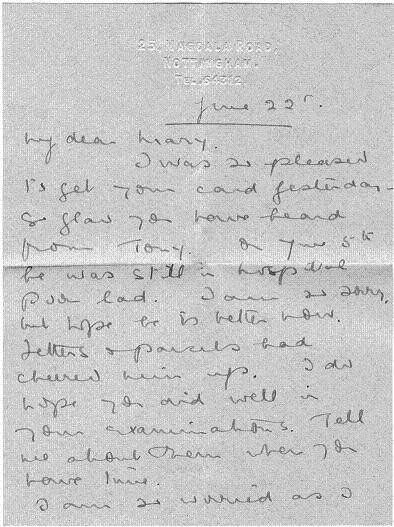 25, MAGDALA ROAD,
NOTTINGHAM.
TEL. 64312.
June 22nd.
My dear Mary.
I was so pleased
to get your card yesterday -
So glad you have heard
from Tony. On June 5th
he was still in hospital
poor lad. I am so sorry,
but hope he is better now.
Letters & parcels had
cheered him up. I do
hope you did well in
your examinations. Tell
me about them when you
have time.
I am so worried as I